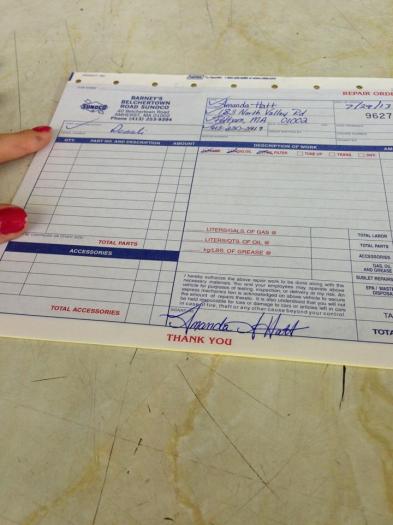 REPAIR ORDE
SUNOCO
BARNEY'S
BELCHERTOWN
ROAD SUNOCO
40 Belchertown Road
AMHERST, MA 01002
Phone (413) 253-9394
Amanda Hatt
183 North Valley Rd
Pelham, MA 01002
7/29/13
9627
QTY. PART NO. AND DESCRIPTION AMOUNT
DESCRIPTION OF WORK AM
OIL FILTER TUNE UP TRANS. DIFF.
LITERS/GALS. OF GAS @
LITERS/QTS. OF OIL @
kg/LBS. OF GREASE @
TOTAL PARTS
ACCESSORIES
TOTAL ACCESSORIES
TOTAL LABOR
TOTAL PARTS
ACCESSORIES
GAS, OIL
AND GREASE
SUBLET REPAIRS
EPA / WASTE
DISPOSA
TA
TOTA
I hereby authorize the above repair work to be done along with the
necessary materials. You and your employees may operate above
vehicle for purposes of testing, inspection, or delivery at my risk. An
express mechanics lien is acknowledged on above vehicle to secure
the amount of repairs thereto. It is also understood that you will not
be held responsible for loss or damage to cars or articles left in cars
in case of fire, theft or any other cause beyond your control.
Amanda A Hatt
THANK YOU